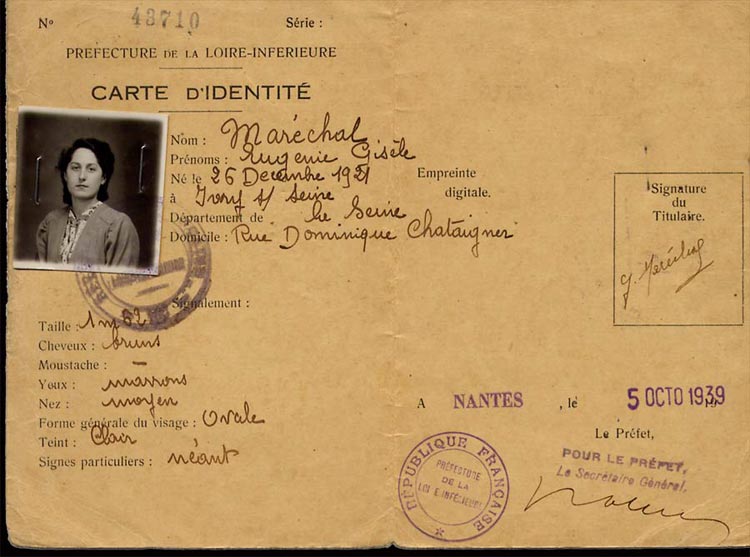 Nº 43710 Série :
PREFECTURE DE LA LOIRE-INFERIEURE
CARTE D'IDENTITÉ
Nom : Maréchal
Prénoms : Eugénie Gisèle
Né le 26 Décembre 1921
à Ivry s/ Seine
Département de la Seine
Domicile : Rue Dominique Chataigner
Signalement :
Taille : 1m62
Cheveux : bruns
Moustache : —
Yeux : marrons
Nez : moyen
Forme générale du visage : Ovale
Teint : Clair
Signes particuliers : néant
Empreinte
digitale.
Signature
du
Titulaire.
A NANTES , le 5 OCTO 1939
Le Préfet,
POUR LE PRÉFET,
Le Secrétaire Général,
RÉPUBLIQUE FRANÇAISE
PRÉFECTURE
DE LA
LOIRE INFÉRIEURE